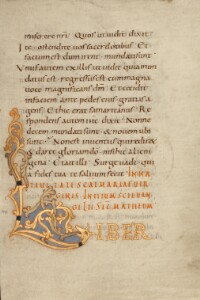 miserere nri. Quos ut vidit dixit
Ite ostendite vos sacerdotibus. Et
factum est dum irent mundati sunt
Unus autem ex illis ut vidit quia mun
datus est. regressus est cum magna
voce magnificans dm. Et cecidit
in faciem ante pedes eius gratias a
gens. Et hic erat samaritanus. Res
pondens autem ihs dixit. Nonne
decem mundati sunt & novem ubi
sunt. Non est inventus qui rediret &
daret gloriam do. nisi hic alieni
gena. Et ait illi. Surge vade. qui
a fides tua te salvum fecit.
LIBER